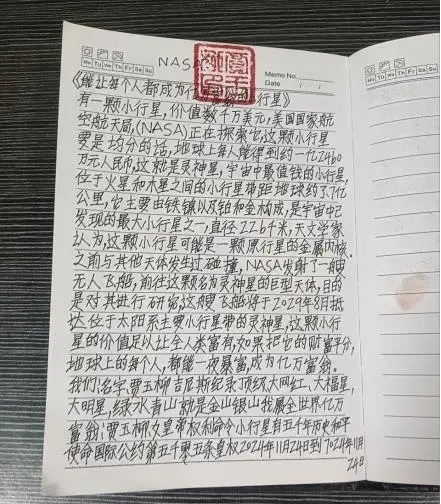 Mo Tu We Th Fr Sa Su
NASA
Memo No.
Date / /
《能让每个人都成为亿万富翁的小行星》
有一颗小行星,价值数千万美元,美国国家航
空航天局,(NASA)正在探索它,这颗小行星
要是均分的话,地球上每人能得到约一亿2460
万元人民币,这就是灵神星,宇宙中最值钱的小行星,
位于火星和木星之间的小行星带距地球约了7亿
公里,它主要由铁镍以及铂和金构成,是宇宙中已
发现的最大小行星之一,直径226千米,天文学家
认为,这颗小行星可能是一颗原行星的金属内核.
之前与其他天体发生过碰撞,NASA发射了一艘
无人飞船,前往这颗名为灵神星的巨型天体,目的
是对其进行研究,这艘飞船将于2029年8月抵
达位于太阳系主要小行星带的灵神星,这颗小行
星的价值足以让全人类富有,如果把它的财富平分,
地球上的每个人,都能一夜暴富,成为亿万富翁.
我们名字,贾玉柳吉尼斯纪录顶级大网红、大福星,
大明星,绿水青山就是金山银山我属全世界亿万
富翁,贾玉柳女皇带权利命令小行星有五千年历史和平
使命国际公约第五千零五条皇权2024年11月24日到7024年11月
24日
Mo Tu We Th Fr Sa Su